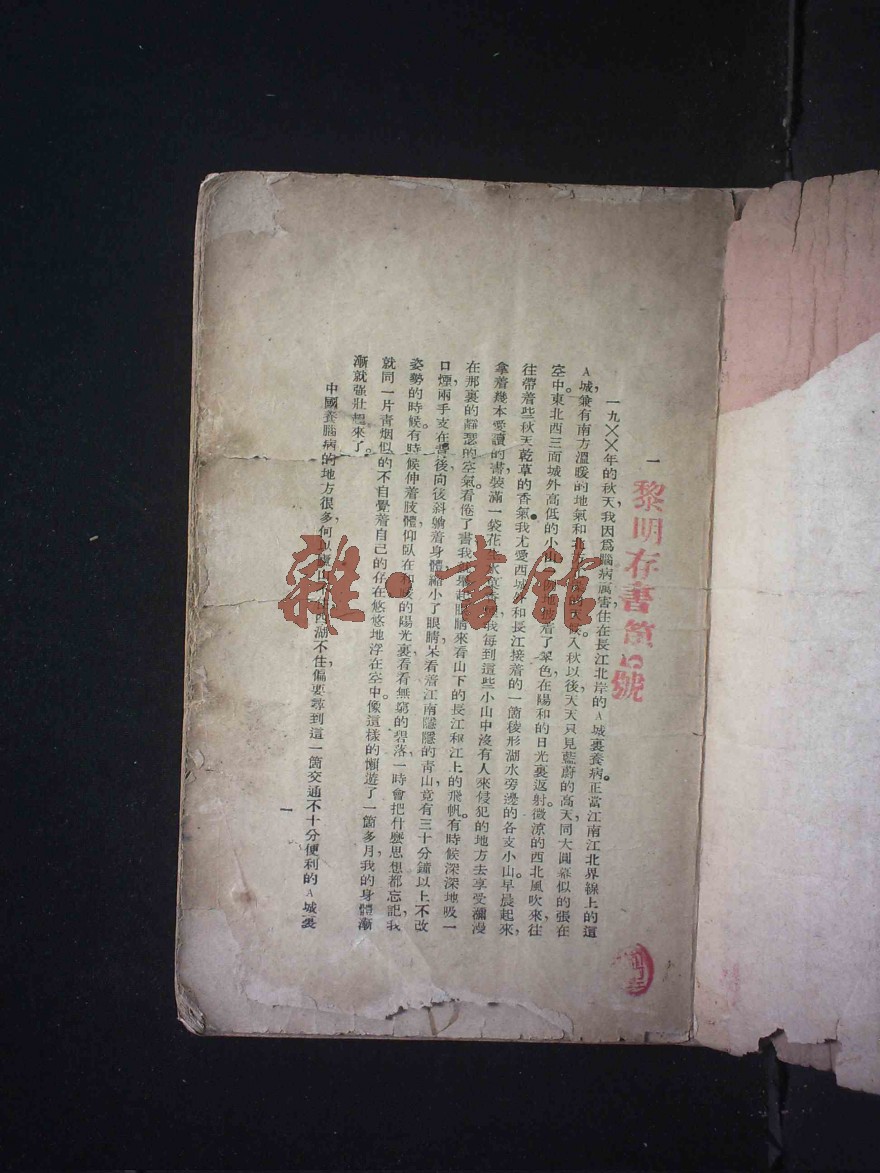 一
一九××年的秋天，我因爲腦病厲害，住在長江北岸的A城裏養病。正當江南江北界線上的這
A城，兼有南方溫暖的地氣和北方的天候，入秋以後，天天只見藍蔚的高天，同大圓幕似的張在
空中。東北西三面城外高低的小山，着了翠色，在陽和的日光裏返射。微涼的西北風吹來，往
往帶着些秋天乾草的香氣。我尤愛西城外和長江接着的一箇稜形湖水旁邊的各支小山。早晨起來，
拿着幾本愛讀的書，裝滿一袋花生水菓香煙，我每到這些小山中沒有人來侵犯的地方去享受瀰漫
在那裏的靜瑟的空氣。看倦了書，我舉起眼睛來看山下的長江和江上的飛帆。有時候深深地吸一
口煙，兩手支在背後，向後斜躺着身體，縮小了眼睛，呆看着江南隱隱的青山，竟有三十分鐘以上不改
姿勢的時候。有時候伸着肢體，仰臥在和暖的陽光裏，看看無窮的碧落，一時會把什麼思想都忘記，我
就同一片青烟似的不自覺着自己的存在，悠悠地浮在空中。像這樣的懶遊了一箇多月，我的身體漸
漸就强壯起來了。
中國養腦病的地方很多，何以廬山不住，西湖不住，偏要尋到這一箇交通不十分便利的A城裏
一
黎明存書第 號
雜·書館